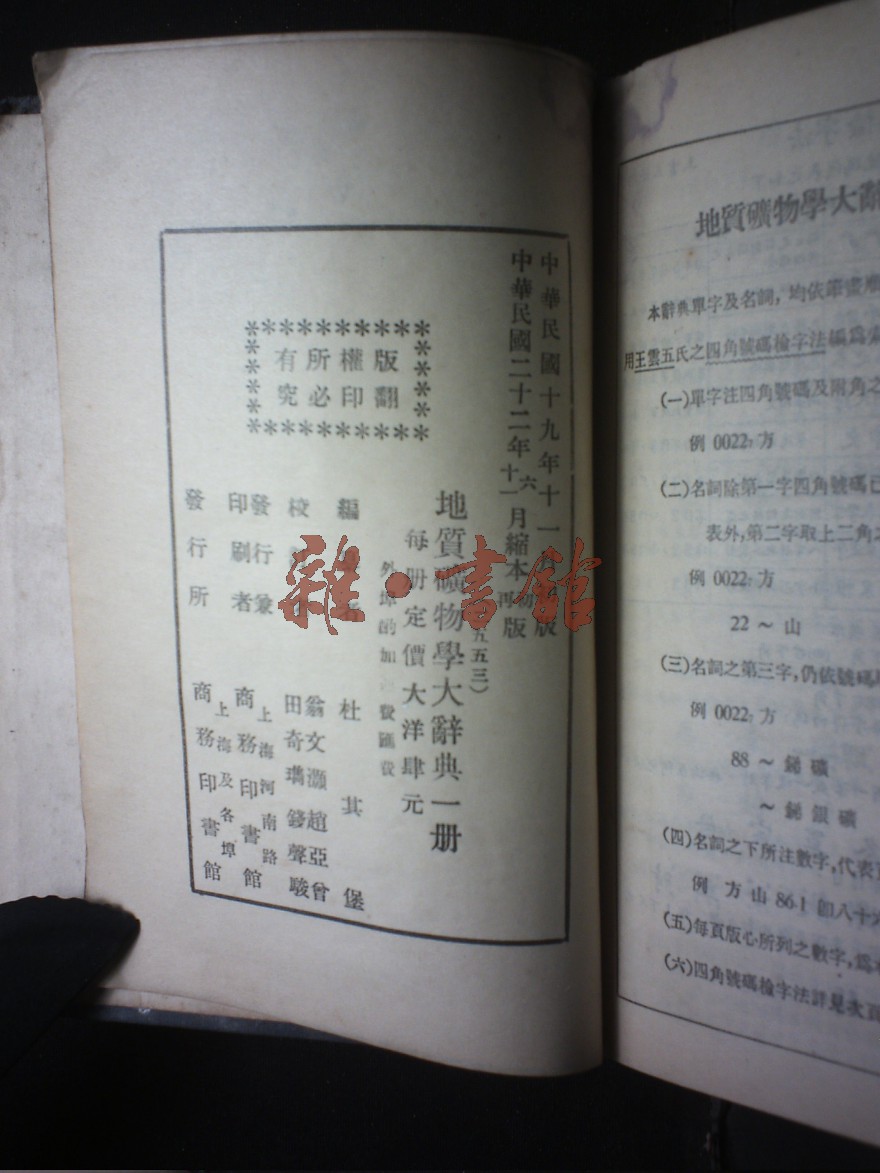 中華民國十九年十一月初版
中華民國二十二年六十一月縮本初再版
五五三)
地質礦物學大辭典一册
每册定價大洋肆元
外埠酌加 費匯費
版權所有
翻印必究
編 者 杜其堡
校 翁文灝 趙亞曾
田奇㻪 錢聲駿
發行兼印刷者 上海河南路
商務印書館
發行所 上海及各埠
商務印書館
雜·書館
地質礦物學大辭
本辭典單字及名詞，均依筆畫
用王雲五氏之四角號碼檢字法編爲
(一)單字注四角號碼及附角之
例 0022₇ 方
(二)名詞除第一字四角號碼已
表外，第二字取上二角之
例 0022₇ 方
22 ～ 山
(三)名詞之第三字，仍依號碼
例 0022₇ 方
88 ～ 銻礦
～ 銻銀礦
(四)名詞之下所注數字，代表
例 方山 86·1 卽八十六
(五)每頁版心所列之數字，爲
(六)四角號碼檢字法詳見次頁